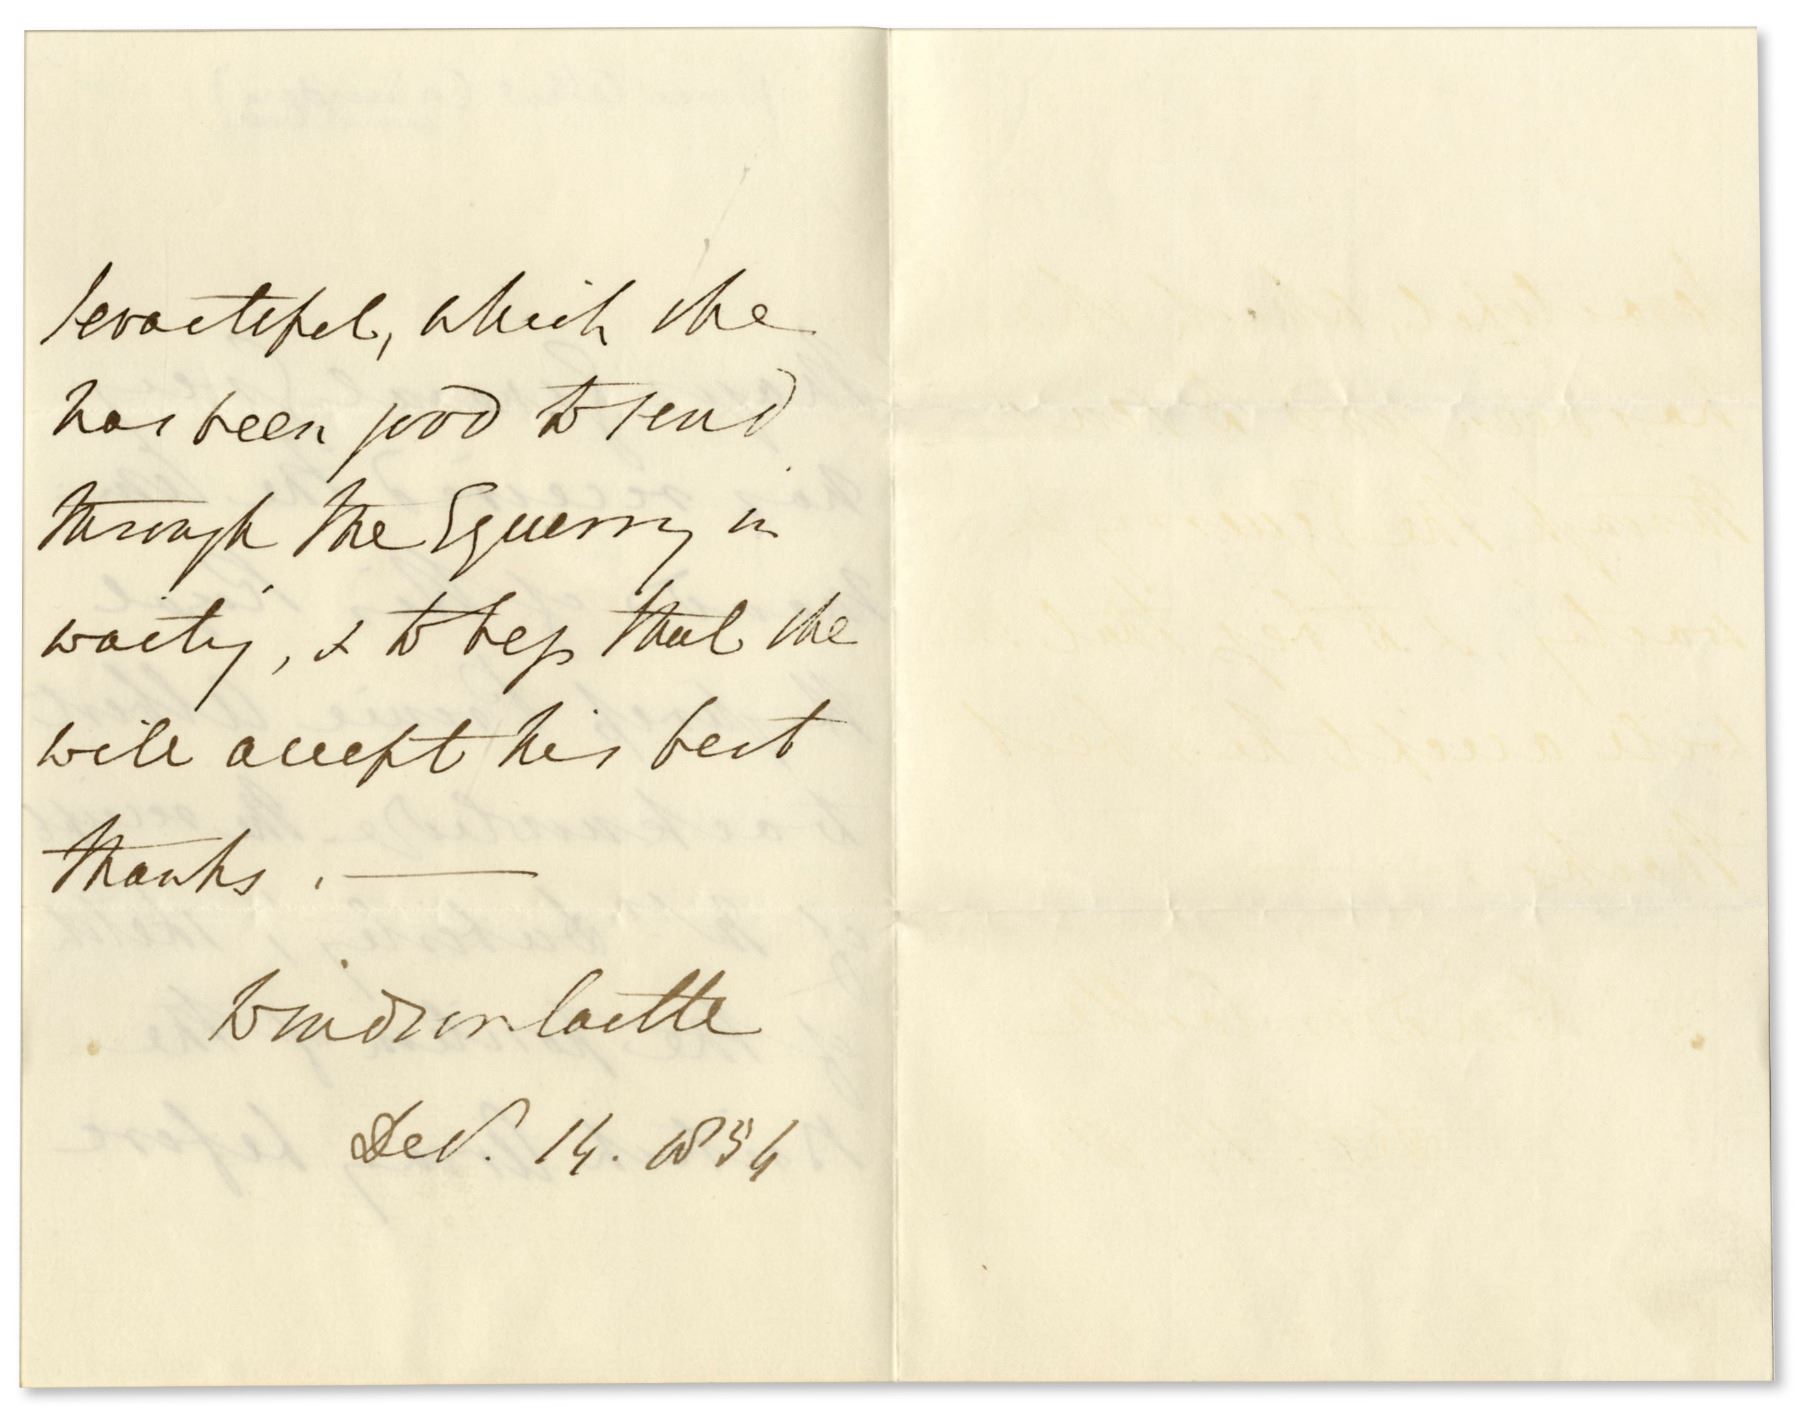 Sevastopol, which she
has been good to send
through the Equerry in
waiting, & to beg that she
will accept his best
thanks. —
Windsor Castle
Dec. 14. 1854